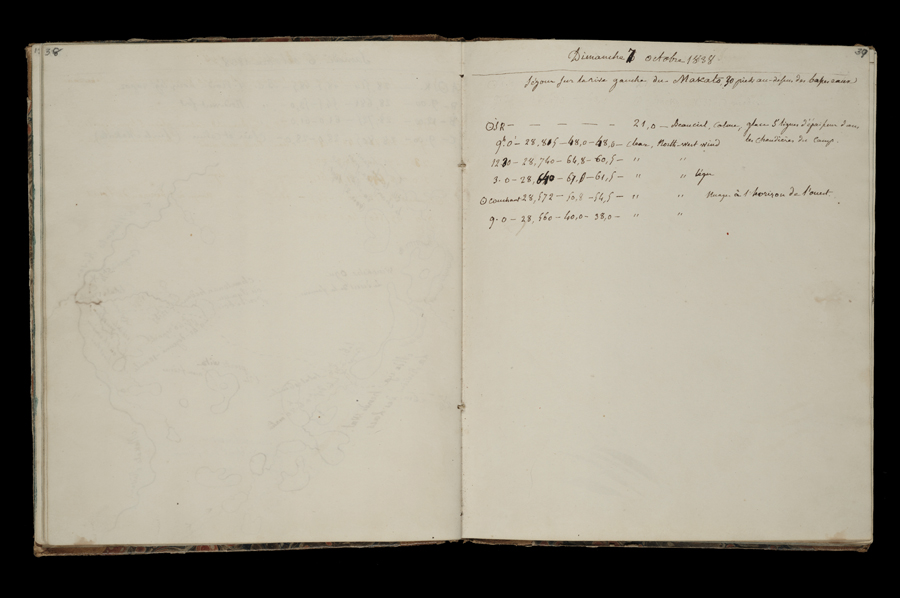 38
39
Dimanche 7 octobre 1838
Séjour sur la rive gauche du Makato, 30 pieds au-dessus des basses eaux
☉ S R — — — — — — 21,0 — Beau ciel, calme, glace 5 lignes d'épaisseur dans
les chaudières du camp.
9h 0' — 28,805 — 48,0 — 48,0 — clear, North west wind
12 30 — 28,740 — 64,8 — 60,5 — " "
3. 0 — 28,640 — 67,0 — 61,5 — " " léger
☉ couchant 28,572 — 50,8 — 54,5 — " " Nuages à l'horison de l'ouest
9. 0 — 28,560 — 40,0 — 38,0 — " "